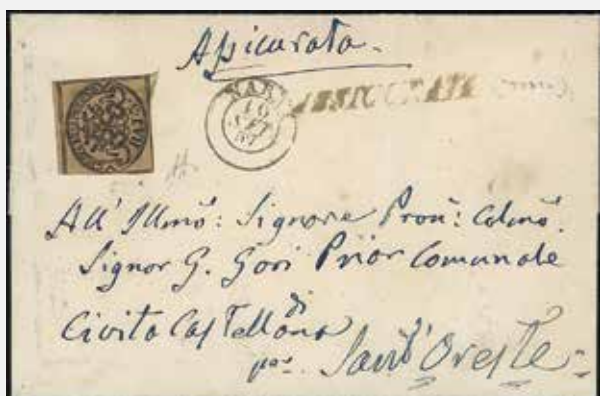 Assicurata
ASSICURATA
10
SET
All' Illmo: Signore Pron: Colmo.
Signor G. Gori Prior Comunale
di
Civita Castellana
per Sant' Oreste